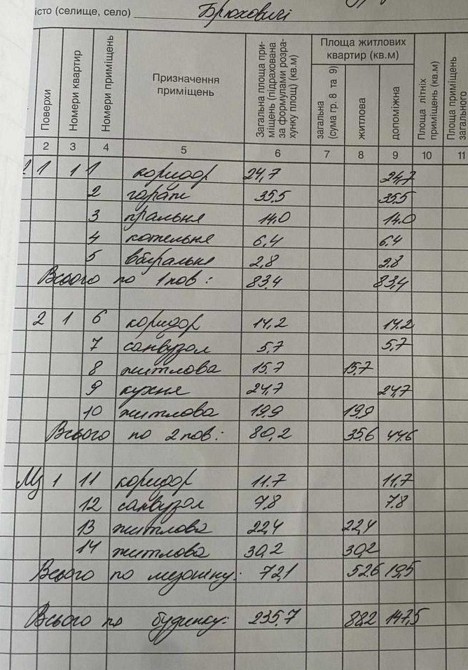 місто (селище, село) Брюховичі
Поверхи
Номери квартир
Номери приміщень
Призначення приміщень
Загальна площа приміщень (підрахована за формулами розрахунку площ) (кв.м)
Площа житлових квартир (кв.м)
загальна (сума гр. 8 та 9)
житлова
допоміжна
Площа літніх приміщень (кв.м)
Площа приміщень загального
2 3 4 5 6 7 8 9 10 11
1 1 1 коридор 24,7 24,7
2 гараж 35,5 35,5
3 пральня 14.0 14.0
4 котельня 6,4 6,4
5 вбиральня 2,8 2,8
Всього по 1 пов: 83,4 83,4
2 1 6 коридор 14,2 14.2
7 санвузол 5,7 5,7
8 житлова 15.7 15,7
9 кухня 24,7 24,7
10 житлова 19,9 19,9
Всього по 2 пов: 80,2 35,6 44,6
Мз 1 11 коридор 11.7 11,7
12 санвузол 7,8 7.8
13 житлова 22,4 22,4
14 житлова 30,2 30,2
Всього по мезоніну: 72,1 52,6 19,5
Всього по будинку: 235,7 88,2 147,5